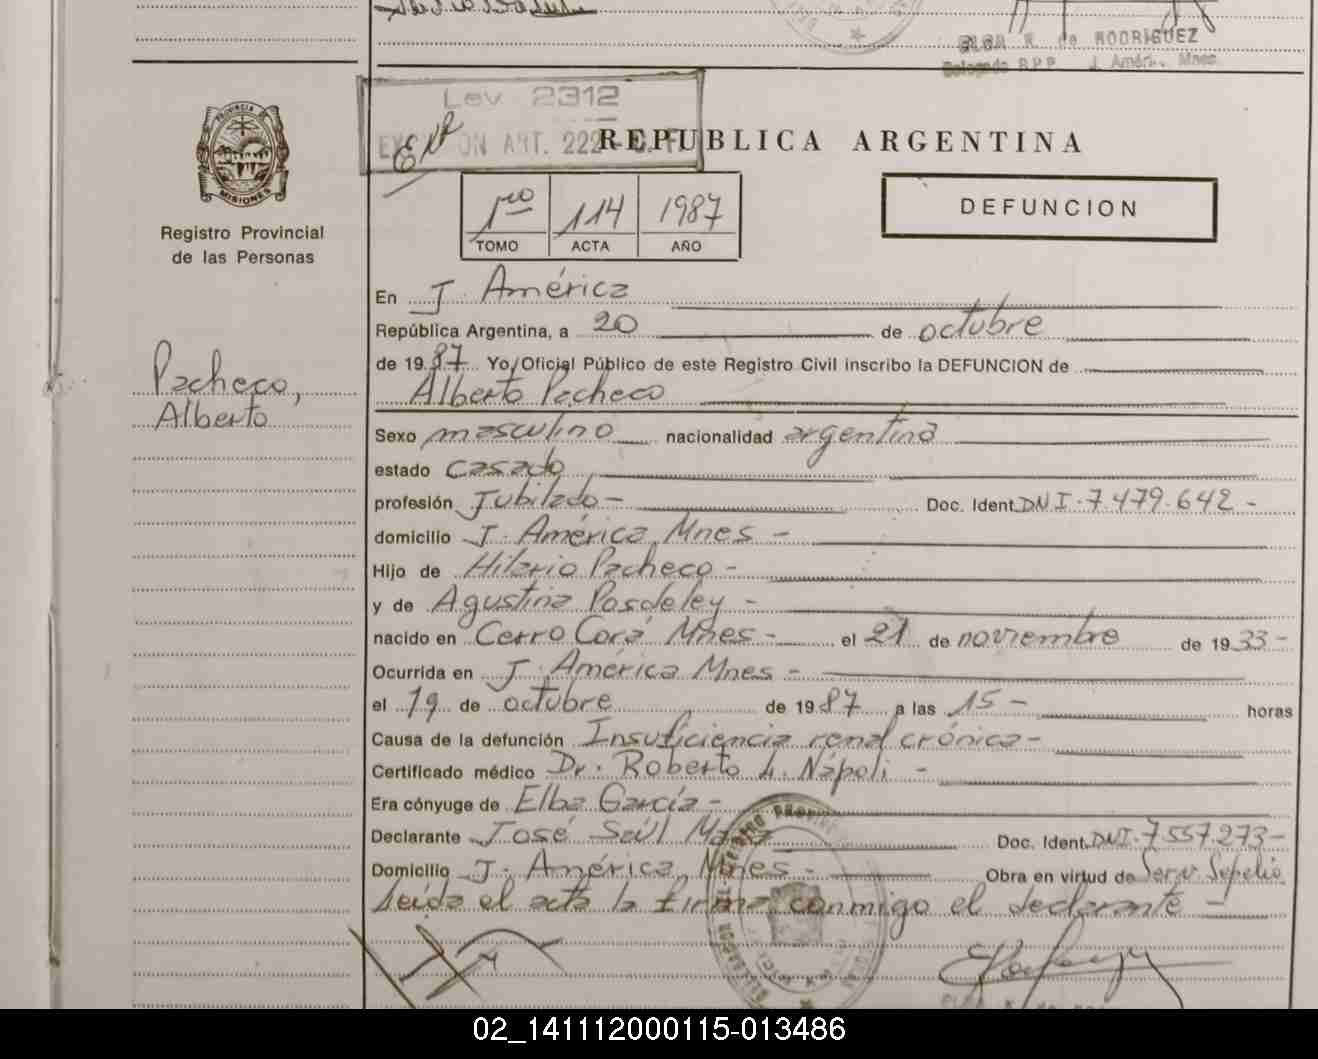 RODRIGUEZ
Ley 2312
ART. 222
REPUBLICA ARGENTINA
PROVINCIA DE
MISIONES
Registro Provincial
de las Personas
1ro 114 1987
TOMO ACTA AÑO
DEFUNCION
En J. América
República Argentina, a 20 de octubre
de 1987 Yo, Oficial Público de este Registro Civil inscribo la DEFUNCION de
Alberto Pacheco
Pacheco,
Alberto
Sexo masculino nacionalidad argentina
estado casado
profesión Jubilado - Doc. Ident. DNI. 7.479.642 -
domicilio J. América, Mnes -
Hijo de Hilario Pacheco -
y de Agustina Posdeley -
nacido en Cerro Corá Mnes - el 21 de noviembre de 1933 -
Ocurrida en J. América Mnes -
el 19 de octubre de 1987 a las 15 - horas
Causa de la defunción Insuficiencia renal crónica -
Certificado médico Dr. Roberto A. Nápoli -
Era cónyuge de Elba García -
Declarante José Saúl Doc. Ident. DNI. 7.557.273 -
Domicilio J. América, Mnes - Obra en virtud de Serv. Sepelio
Leída el acta la firma conmigo el declarante -
02_141112000115-013486